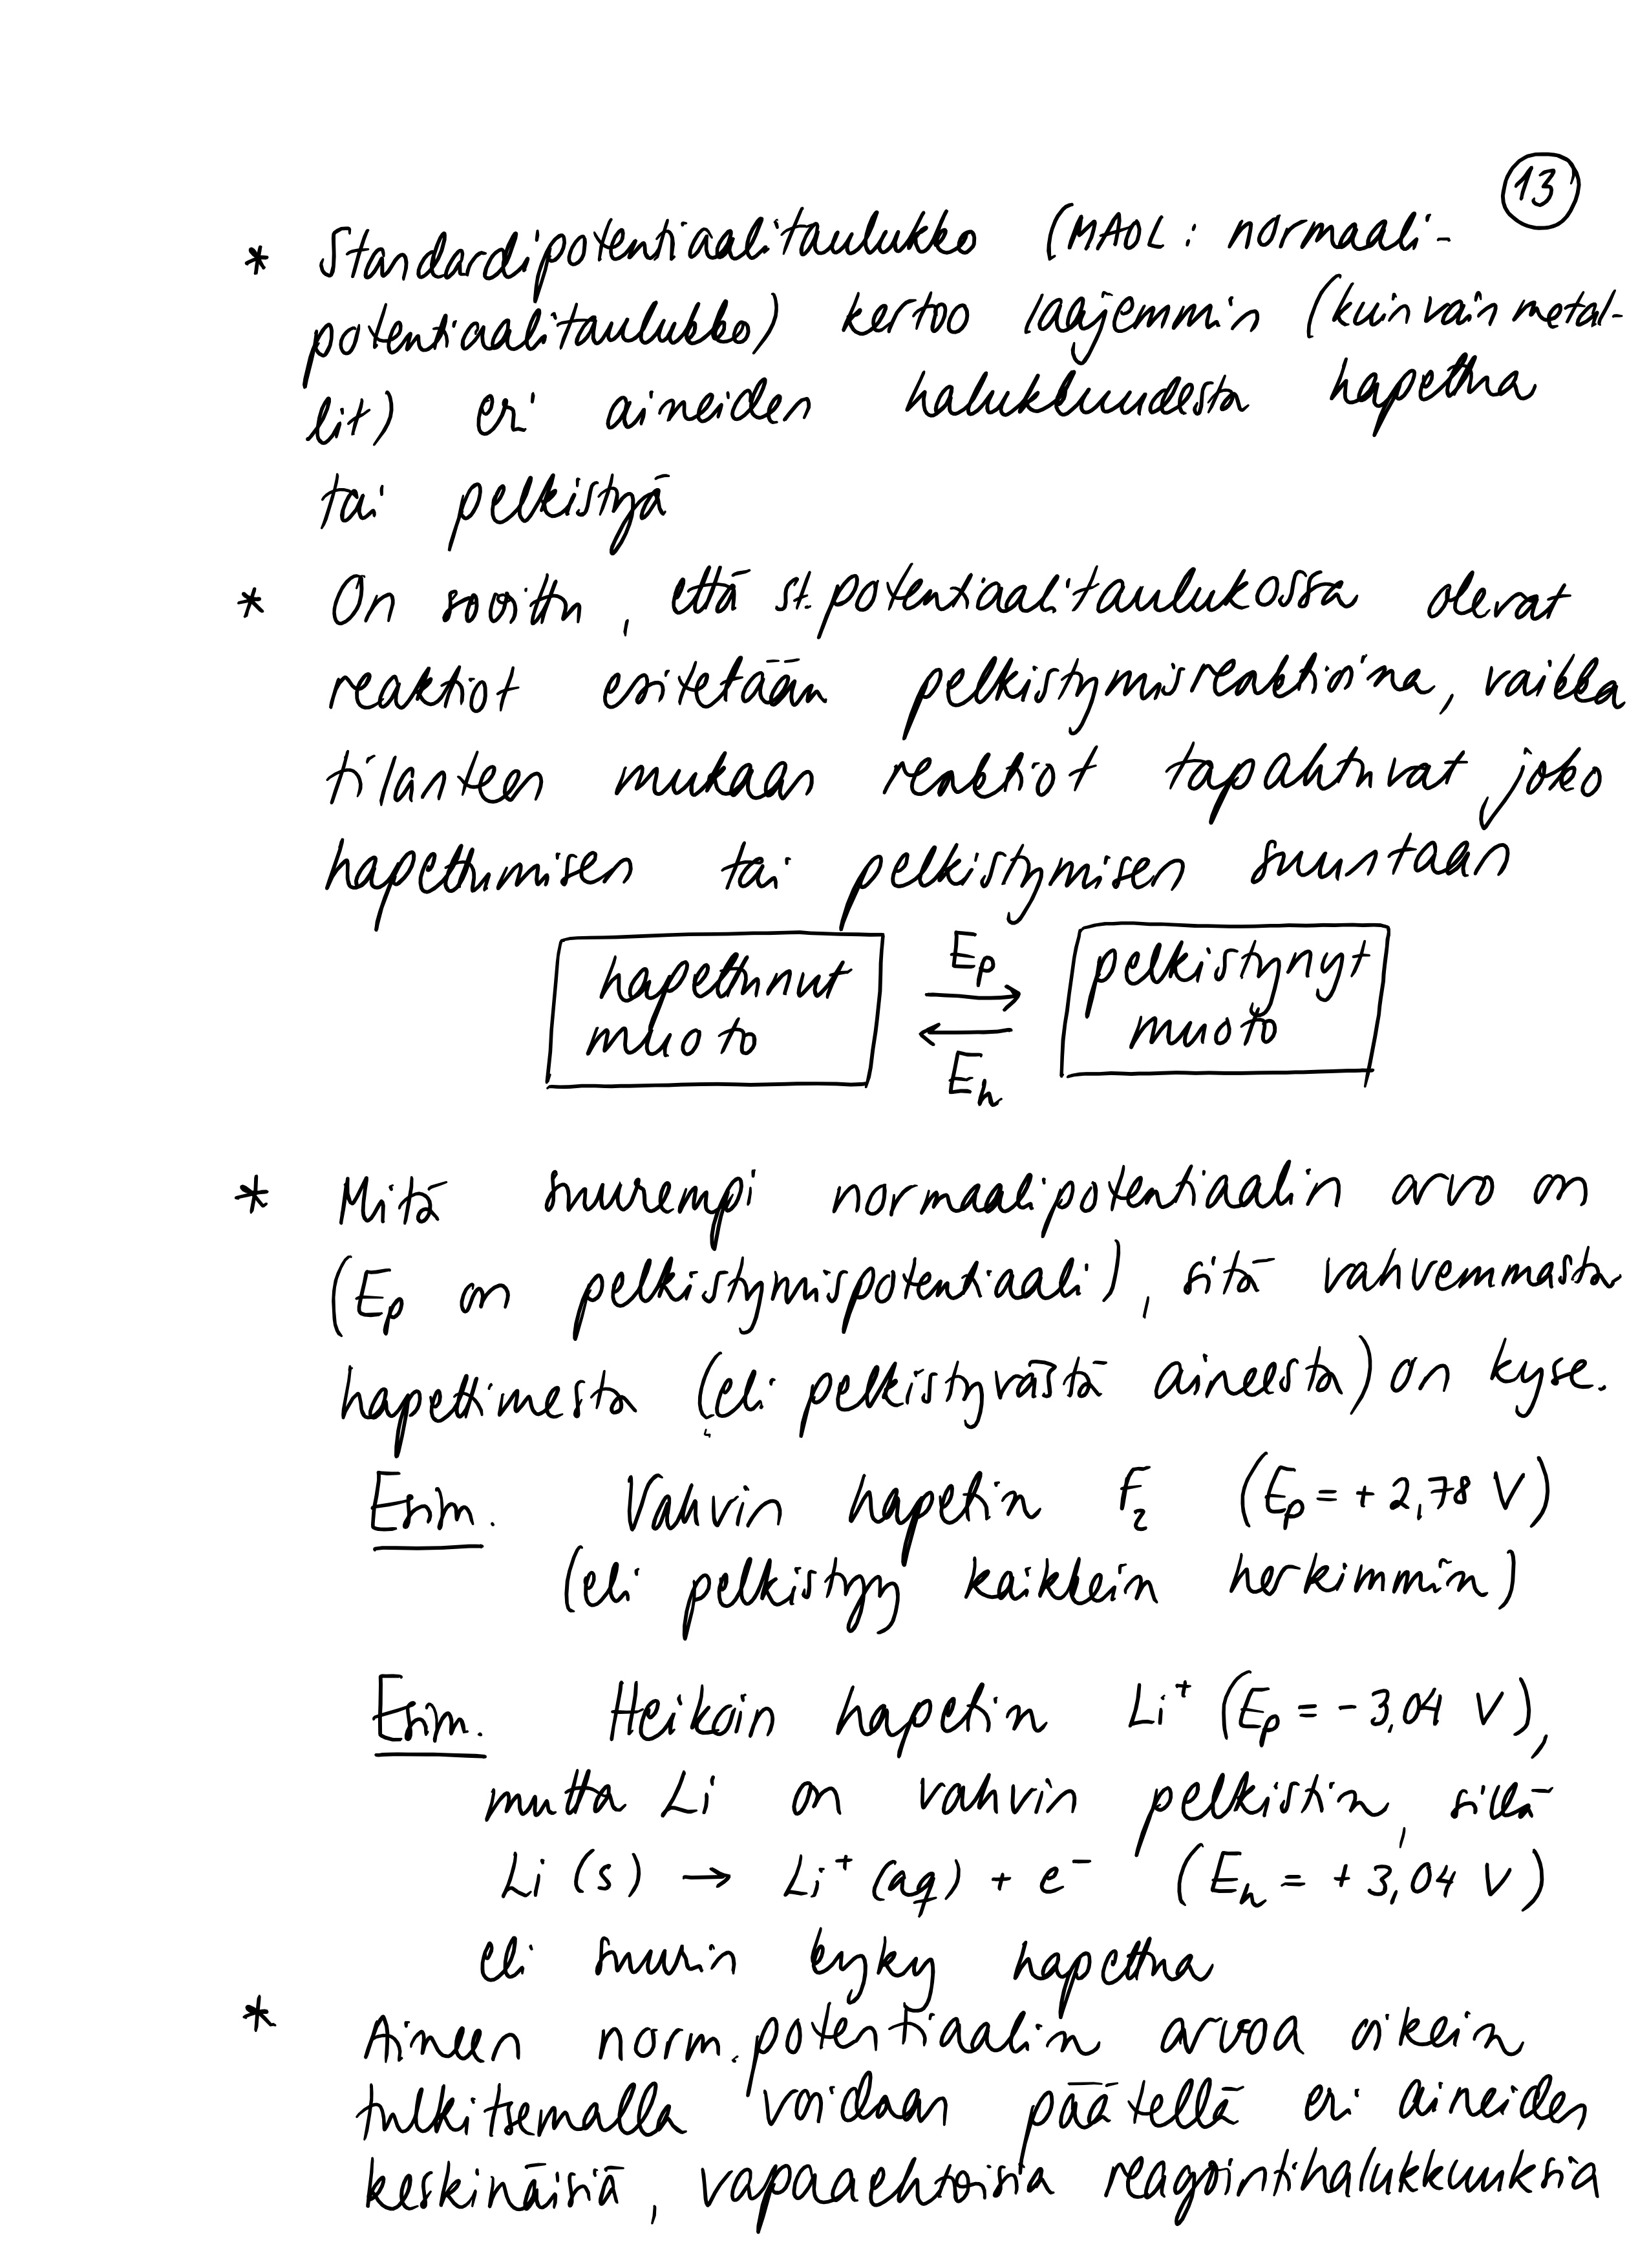 13
* Standardipotentiaalitaulukko (MAOL: normaali-
potentiaalitaulukko) kertoo laajemmin (kuin vain metal-
lit) eri aineiden halukkuudesta hapettua
tai pelkistyä
* On sovittu, että st.potentiaalitaulukossa olevat
reaktiot esitetään pelkistymisreaktioina, vaikka
tilanteen mukaan reaktiot tapahtuvat joko
hapettumisen tai pelkistymisen suuntaan
hapettunut muoto Ep → ← Eh pelkistynyt muoto
* Mitä suurempi normaalipotentiaalin arvo on
(Ep on pelkistymispotentiaali), sitä vahvemmasta
hapettimesta (eli pelkistyvästä aineesta) on kyse.
Esim. Vahvin hapetin F₂ (Ep = + 2,78 V)
(eli pelkistyy kaikkein herkimmin)
Esim. Heikoin hapetin Li⁺ (Ep = - 3,04 V),
mutta Li on vahvin pelkistin, sillä
Li (s) → Li⁺ (aq) + e⁻ (Eh = + 3,04 V)
eli suurin kyky hapettua
* Aineen norm.potentiaalin arvoa oikein
tulkitsemalla voidaan päätellä eri aineiden
keskinäisiä, vapaaehtoisia reagointihalukkuuksia